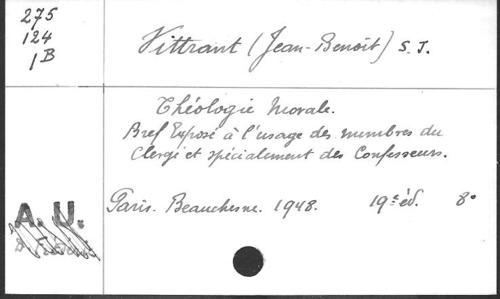 275
124
1 B
Vittrant (Jean-Benoît) S. J.
Théologie Morale.
Bref Exposé à l'usage des membres du
Clergé et spécialement des Confesseurs.
Paris. Beauchesne. 1948. 19e éd. 8°
A. U.